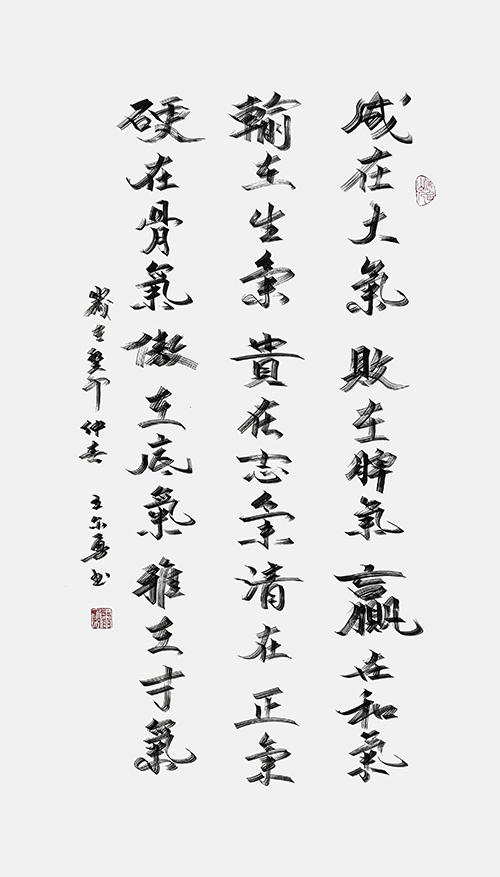 成在大氣敗在脾氣贏在和氣
輸在生氣貴在志氣清在正氣
硬在骨氣傲在底氣雅在才氣
歲在癸卯仲春 王尔勇书